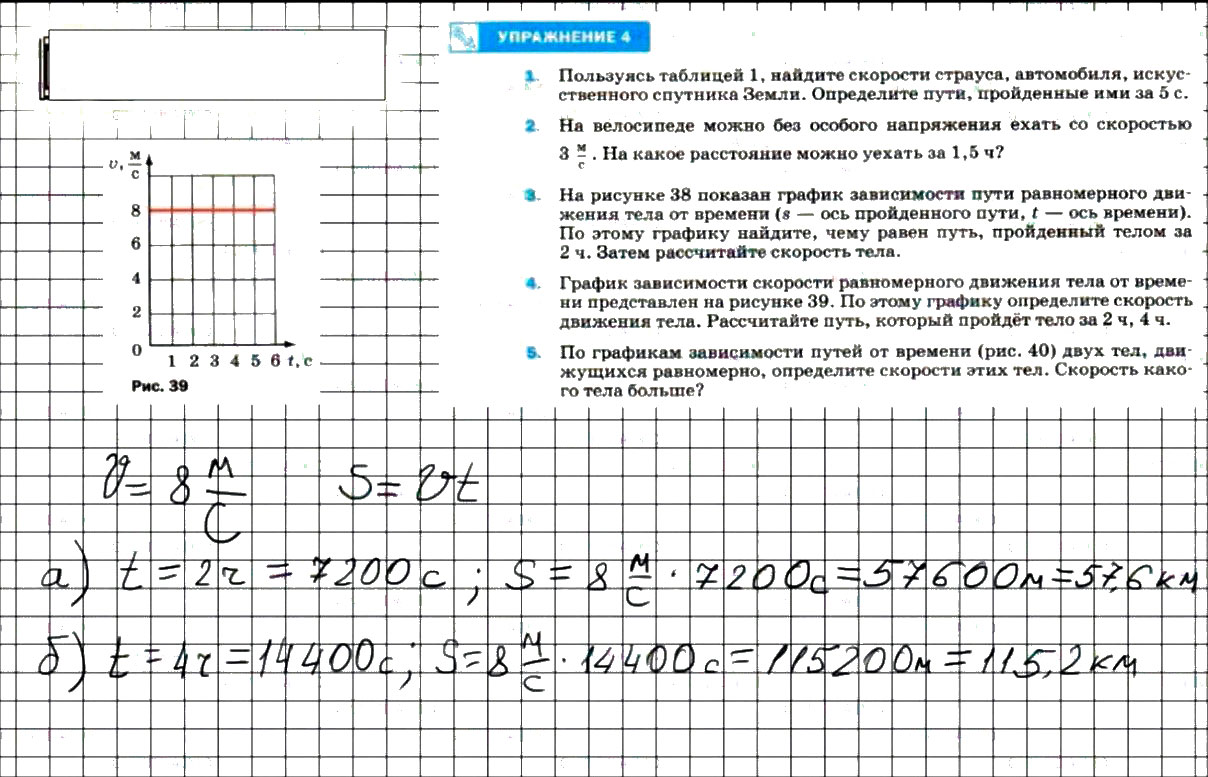 УПРАЖНЕНИЕ 4
1. Пользуясь таблицей 1, найдите скорости страуса, автомобиля, искус-
ственного спутника Земли. Определите пути, пройденные ими за 5 с.
2. На велосипеде можно без особого напряжения ехать со скоростью
3 м/с. На какое расстояние можно уехать за 1,5 ч?
3. На рисунке 38 показан график зависимости пути равномерного дви-
жения тела от времени (s — ось пройденного пути, t — ось времени).
По этому графику найдите, чему равен путь, пройденный телом за
2 ч. Затем рассчитайте скорость тела.
4. График зависимости скорости равномерного движения тела от време-
ни представлен на рисунке 39. По этому графику определите скорость
движения тела. Рассчитайте путь, который пройдёт тело за 2 ч, 4 ч.
5. По графикам зависимости путей от времени (рис. 40) двух тел, дви-
жущихся равномерно, определите скорости этих тел. Скорость како-
го тела больше?
v, м/с
8
6
4
2
0
1 2 3 4 5 6 t, с
Рис. 39
v = 8 м/с S = vt
а) t = 2ч = 7200 с ; S = 8 м/с · 7200с = 57600м = 57,6 км
б) t = 4ч = 14400с; S = 8 м/с · 14400с = 115200м = 115,2 км